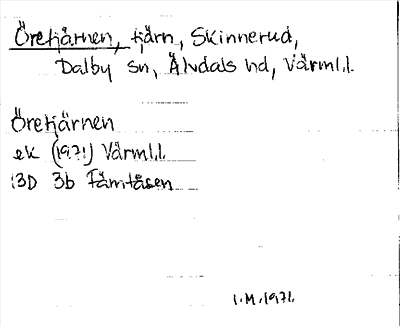 Öretjärnen, tjärn, Skinnerud,
Dalby sn, Älvdals hd, Värml.l.
Öretjärnen
ek (1971) Värml.l.
13D 3b Tåmtåsen
I.M.1971.